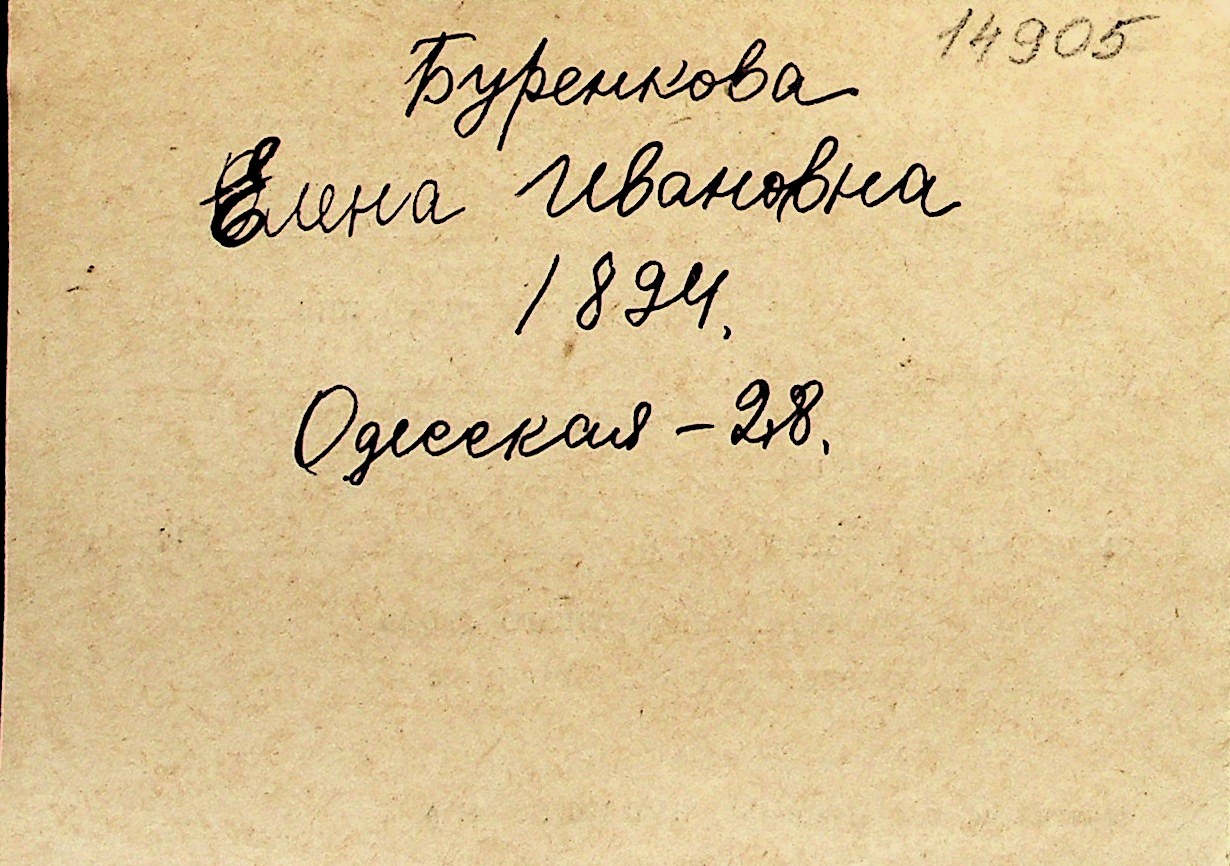 14905
Буренкова
Елена Ивановна
1894.
Одесская – 28.